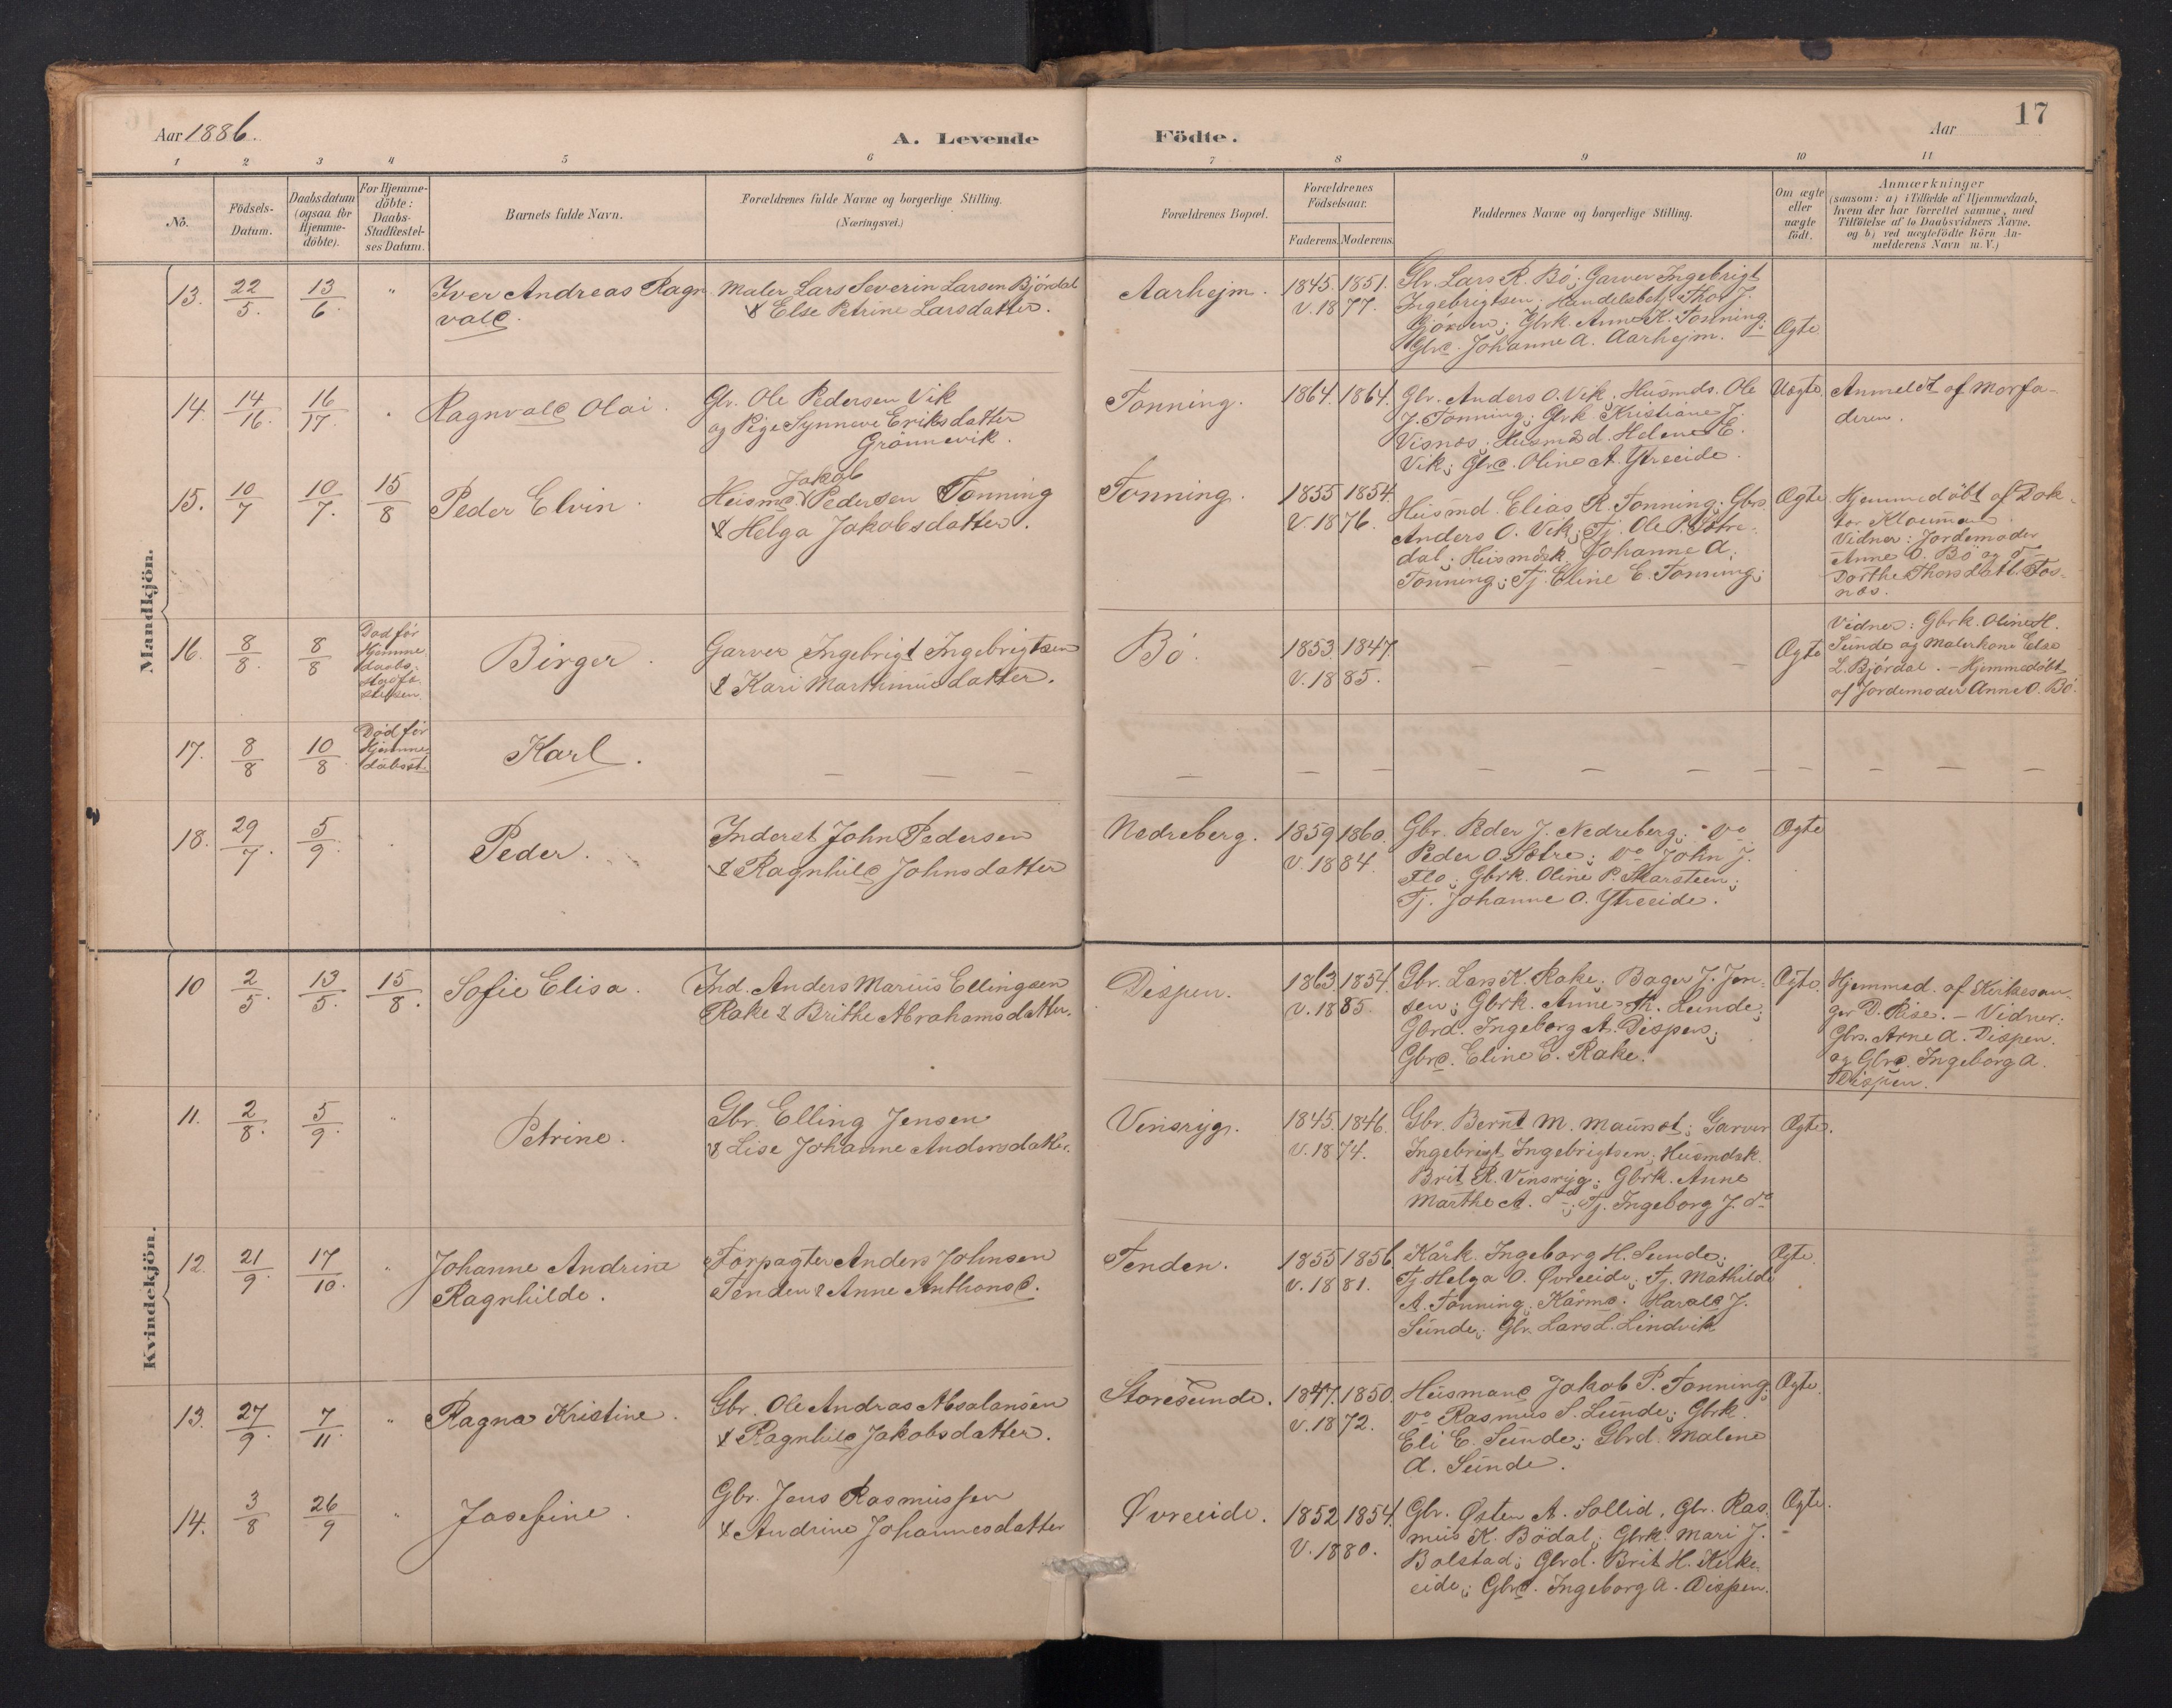 17
Aar 1886.
A. Levende Födte.
Aar
1 2 3 4 5 6 7 8 9 10 11
No.
Födsels-
Datum.
Daabsdatum
(ogsaa for
Hjemme-
döbte).
For Hjemme-
döbte:
Daabs-
Stadfæstel-
ses Datum.
Barnets fulde Navn.
Forældrenes fulde Navne og borgerlige Stilling.
(Næringsvei.)
Forældrenes Bopæl.
Forældrenes
Födselsaar.
Faderens. Moderens.
Faddernes Navne og borgerlige Stilling.
Om ægte
eller
uægte
födt.
Anmærkninger
(saasom: a) i Tilfælde af Hjemmedaab,
hvem der har forrettet samme, med
Tilföielse af to Daabsvidners Navne.
og b) ved uægtefödte Börn An-
melderens Navn m. V.)
Mandkjön.
13. 22/5. 13/6. "
Iver Andreas Ragn-
vald.
Maler Lars Severin Larsen Björdal
& Else Petrine Larsdatter.
Aarhejm.
1845. 1851.
V. 1877.
Gbr. Lars R. Bö; Garver Ingebrigt
Ingebrigtsen; Handelsbetj. Thor J.
Gbrk. Anne K. Tonning;
Gbrd. Johanne A. Aarhejm.
Ægte
14. 14/16. 16/17. "
Ragnvald Olai.
Gbr. Ole Pedersen Vik
og Pige Synneve Eriksdatter
Grönnevik.
Tonning.
1864. 1864.
Gbr. Anders O. Vik; Husmds. Ole
J. Tonning; Gbrk. Kristiane J.
Visnæs; Husmdsd. Helene E.
Vik; Gbrd. Oline A. Ytreeide.
Uægte.
Anmeldt af Morfa-
deren.
15. 10/7 10/7. 15/8
Peder Elvin.
Jakob
Husmd. Pedersen Tonning
& Helga Jakobsdatter.
Tonning.
1855 1854
V. 1876.
Husmd. Elias R. Tonning; Gbrs.
Anders O. Vik; Tj. Ole P. Sætre-
dal; Husmdsk. Johanne A.
Tonning; Tj. Eline E. Tonning;
Ægte
Hjemmedöbt af Dok-
tor Klouman
Vidner: Jordemoder
Anne O. Bö og
Dorthe Thorsdatt. Fos-
næs.
16. 8/8. 8/8
Död för
Hjemme
daabs-
stadfæ-
stelsen
Birger.
Garver Ingebrigt Ingebrigtsen
& Kari Marthinusdatter.
Bö.
1853. 1847.
V. 1885.
— — — — —
Ægte
Vidner: Gbrk. Oline H.
Sunde og Malerkone Else
L. Björdal. — Hjemmedöbt
af Jordemoder Anne O. Bö.
17. 8/8 10/8
Död för
Hjemme
daabsst.
Karl.
— — — — — — — — — — — — — — —
18. 29/7. 5/9. "
Peder.
Inderst John Pedersen
& Ragnhild Johnsdatter
Nedreberg.
1859 1860.
V. 1884.
Gbr. Peder J. Nedreberg; Do
Peder O. Sætre; Do John J.
Flo; Gbrk. Oline P. Skarsteen;
Tj. Johanne O. Ytreeide.
Ægte
Kvindekjön.
10 2/5. 13/5. 15/8.
Sofie Elisa.
Ind. Anders Marius Ellingsen
Rake & Brithe Abrahamsdatter.
Dispen.
1863. 1854.
V. 1885.
Gbr. Lars K. Rake; Bager J. Jen-
sen; Gbrk. Anne Th. Lunde;
Gbrd. Ingeborg A. Dispen;
Gbrd. Eline E. Rake.
Ægte.
Hjemmed. af Kirkesan-
ger D. Riise. — Vidner:
Gbrs. Arne A. Dispen.
og Gbrd. Ingeborg A.
Dispen.
11. 2/8. 5/9. "
Petrine.
Gbr. Elling Jensen
& Lise Johanne Andersdatter.
Vinsryg.
1845. 1846.
V. 1874.
Gbr. Bernt M. Maurset; Garver
Ingebrigt Ingebrigtsen; Husmdsk.
Brit R. Vinsryg; Gbrk. Anne
Marthe A. do; Tj. Ingeborg J. do
Ægte.
12. 21/9 17/10. "
Johanne Andrine
Ragnhilde.
Forpagter Anders Johnsen
Tenden & Anne Anthonsd.
Tenden.
1855 1856.
V. 1881.
Kårk. Ingeborg H. Sunde;
Tj. Helga O. Øvreeide; Tj. Mathilde
A. Tonning; Kårmd. Harald J.
Sunde; Gbr. Lars L. Lindvik
Ægte.
13. 27/9. 7/11. "
Ragna Kristine.
Gbr. Ole Andras Absalonsen
& Ragnhild Jakobsdatter.
Storesunde.
1847. 1850.
V. 1872.
Husmand Jakob P. Tonning;
Do Rasmus S. Lunde; Gbrk.
Eli E. Sunde; Gbrd. Malene
A. Sunde.
Ægte.
14. 3/8 26/9 "
Josefine.
Gbr. Jens Rasmussen
& Andrine Johannesdatter
Øvreeide.
1852 1854.
V. 1880.
Gbr. Østen A. Sollid, Gbr. Ras-
mus K. Bödal; Gbrk. Mari J.
Bolstad; Gbrd. Brit H. Kirke-
eide; Gbrd. Ingeborg A. Dispen.
Ægte.